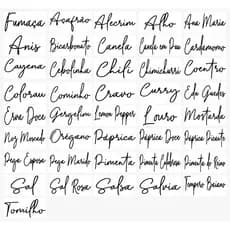 Fumaça Açafrão Alecrim Alho Ana Maria
Anis Bicarbonato Canela Canela em Pau Cardamomo
Cayena Cebolinha Chili Chimichurri Coentro
Colorau Cominho Cravo Curry Edu Guedes
Erva Doce Gergelim Lemon Pepper Louro Mostarda
Noz Moscada Orégano Páprica Páprica Doce Páprica Picante
Pega Esposa Pega Marido Pimenta Pimenta Calabresa Pimenta do Reino
Sal Sal Rosa Salsa Salvia Tempero Baiano
Tomilho